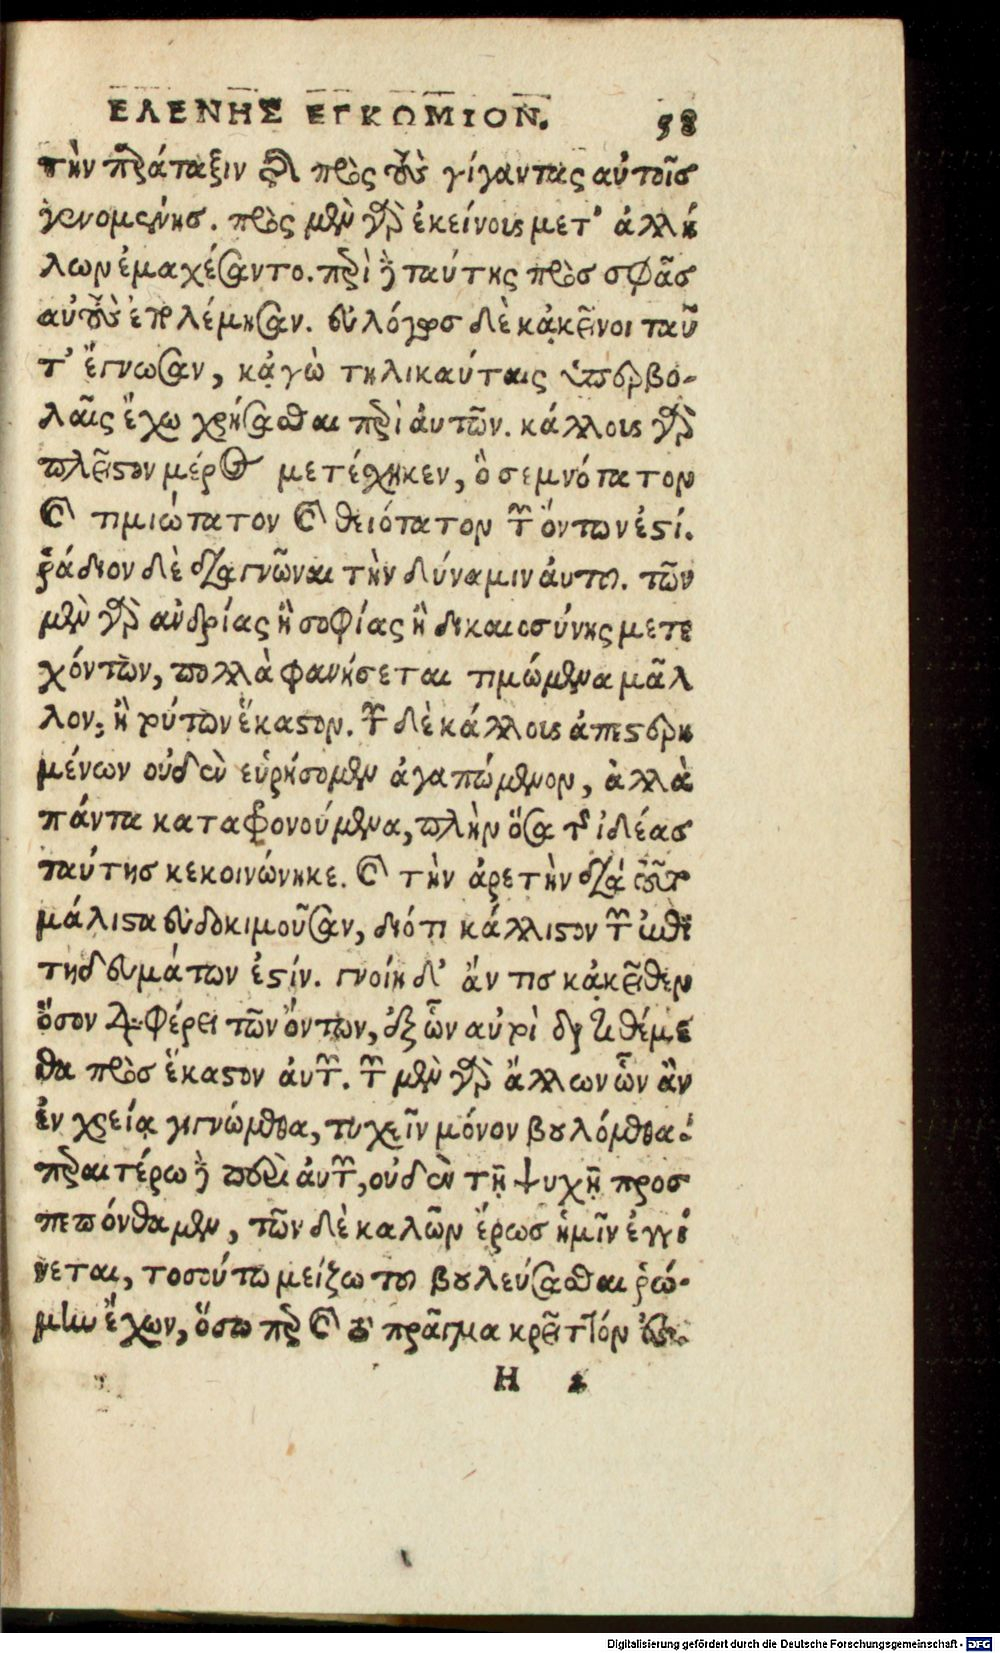 ΕΛΕΝΗΣ ΕΓΚΩΜΙΟΝ. 58
τὴν παράταξιν τὴν πρὸς τοὺς γίγαντας αὐτοῖς
γενομένης. πρὸς μὲν γὰρ ἐκείνους μετ' ἀλλή
λων ἐμαχέσαντο. περὶ δὲ ταύτης πρὸς σφᾶς
αὐτοὺς ἐπολέμησαν. εὐλόγως δὲ κᾀκεῖνοι ταῦ
τ' ἔγνωσαν, κᾀγὼ τηλικαύταις ὑπερβο-
λαῖς ἔχω χρήσασθαι περὶ ἀυτῶν. κάλλους γὰρ
πλεῖστον μέρος μετέσχηκεν, ὃ σεμνότατον
καὶ τιμιώτατον καὶ θειότατον τῶν ὄντων ἐστί.
ῥάδιον δὲ διαγνῶναι τὴν δύναμιν ἀυτοῦ. τῶν
μὲν γὰρ ανδρίας ἢ σοφίας ἢ δικαιοσύνης μετε
χόντων, πολλὰ φανήσεται τιμώμενα μᾶλ
λον, ἢ τούτων ἕκαστον. τῶν δὲ κάλλους ἀπεστερη
μένων οὐδὲν εὑρήσομεν ἀγαπώμενον, ἀλλὰ
πάντα καταφρονούμενα, πλὴν ὅσα τῆς ἰδέας
ταύτης κεκοινώνηκε. καὶ τὴν ἀρετὴν διὰ τοῦτο
μάλιστα εὐδοκιμοῦσαν, διότι κάλλιστον τῶν ἐπι
τηδευμάτων ἐστίν. γνοίη δ' ἄν τις κᾀκεῖθεν
ὅσον διαφέρει τῶν ὄντων, ἐξ ὧν αὐτοὶ διατιθέμε
θα πρὸς ἕκαστον ἀυτῶν. τῶν μὲν γὰρ ἄλλων ὧν ἂν
ἐν χρείᾳ γιγνώμεθα, τυχεῖν μόνον βουλόμεθα·
περαιτέρω δὲ περὶ ἀυτῶν, οὐδὲν τῇ ψυχῇ προσ
πεπόνθαμεν, τῶν δὲ καλῶν ἔρως ἡμῖν ἐγγί
νεται, τοσούτω μείζω τοῦ βουλεύσασθαι ῥώ-
μην ἔχων, ὅσω περ καὶ τὸ πρᾶγμα κρεῖττόν ἐστι.
Η 2
Digitalisierung gefördert durch die Deutsche Forschungsgemeinschaft - DFG